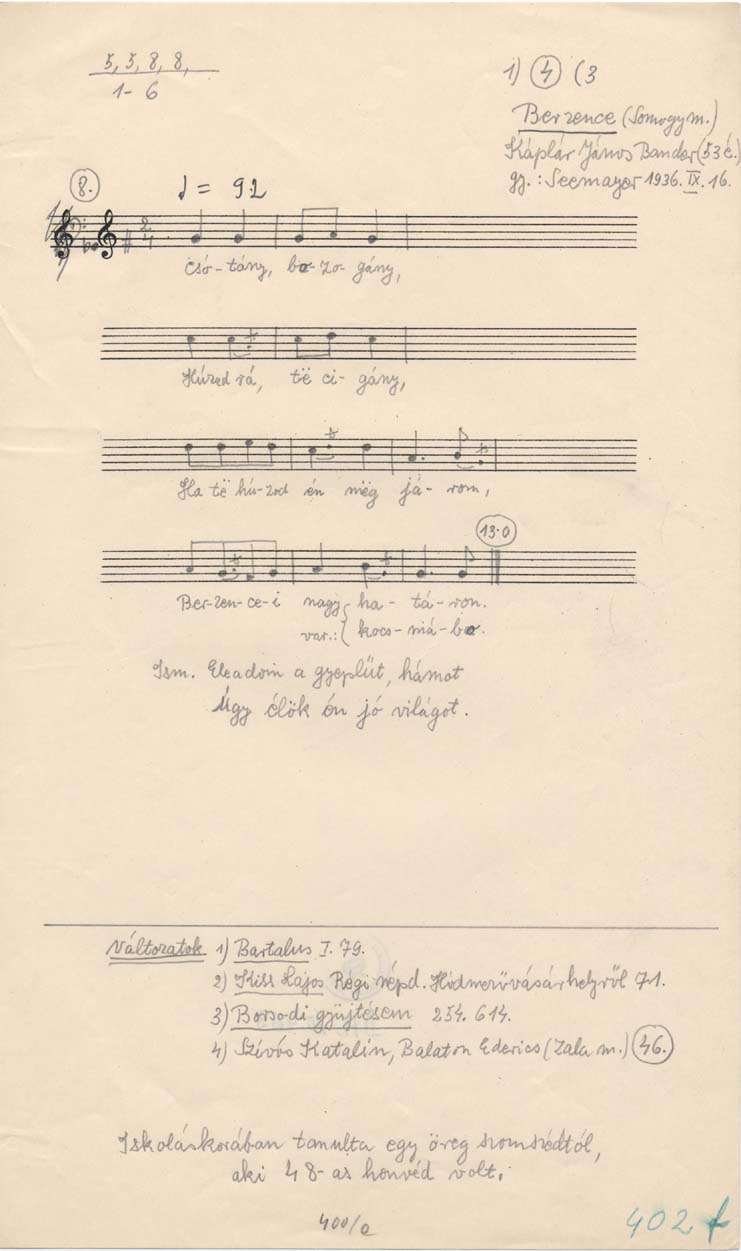 5, 5, 8, 8,
1- 6
1) 4 (3
Berzence (Somogy m.)
Káplár János Bander (53 é.)
gj.: Seemayer 1936. IX. 16.
8.
♩ = 92
2
4
Csó-tány, bo-zo-gány,
Húzed rá, të ci-gány,
Ha të hú-zod én mëg já-rom,
13.0
Ber-zen-ce-i nagy ha-tá-ron.
var.: kocs-má-bo.
Ism. Eleadom a gyeplűt, hámot
Úgy élök én jó világot.
Változatok 1) Bartalus I. 79.
2) Kiss Lajos Régi népd. Hódmezővásárhelyről 71.
3) Borsodi gyüjtésem 254. 614.
4) Szívós Katalin, Balaton Ederics (Zala m.) 46.
Iskoláskorában tanulta egy öreg szomszédtól,
aki 48-as honvéd volt.
400/a
402 f